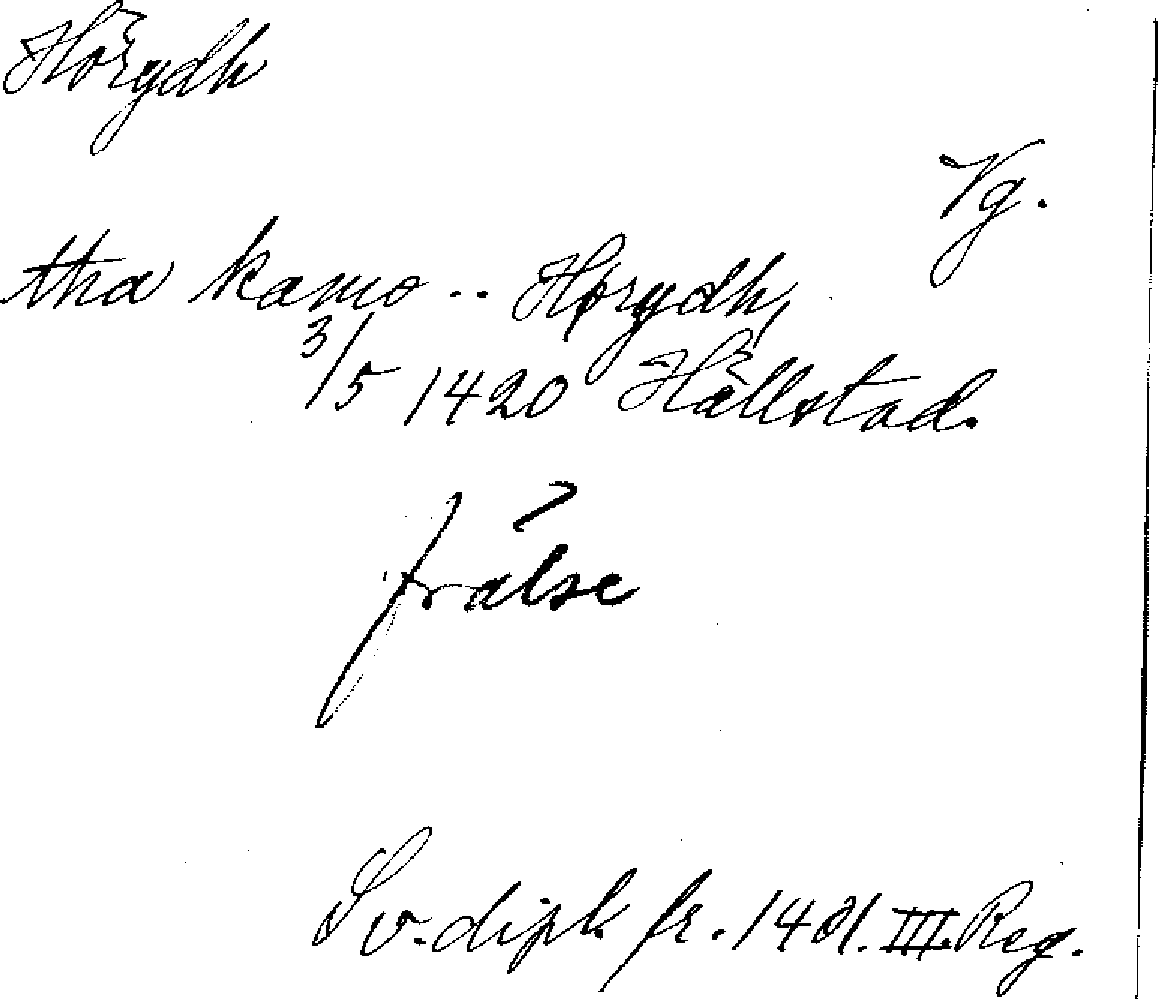 Hörydh
Vg.
tha kamo .. Hørydh,
3/5 1420 Hällstad.
frälse
Sv. dipl. fr. 1401. III. Reg.